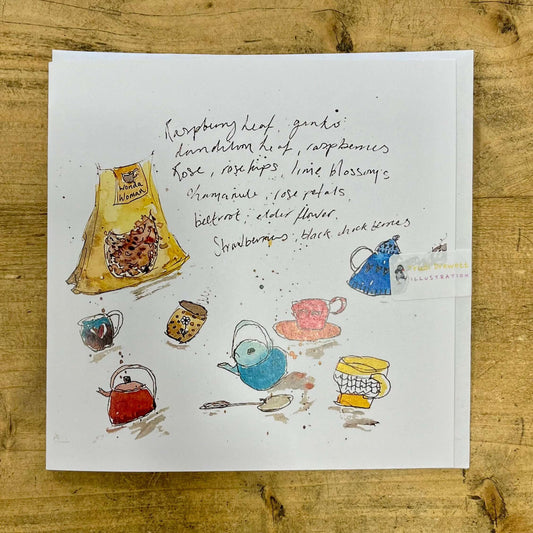 Raspberry Leaf, ginko:
dandilion Leaf, raspberries
Rose, rosehips, lime blossoms
chamomile, rose petals,
beetroot, elder flower,
Strawberries black chock berries
Wonda
Woman
ILLUSTRATION